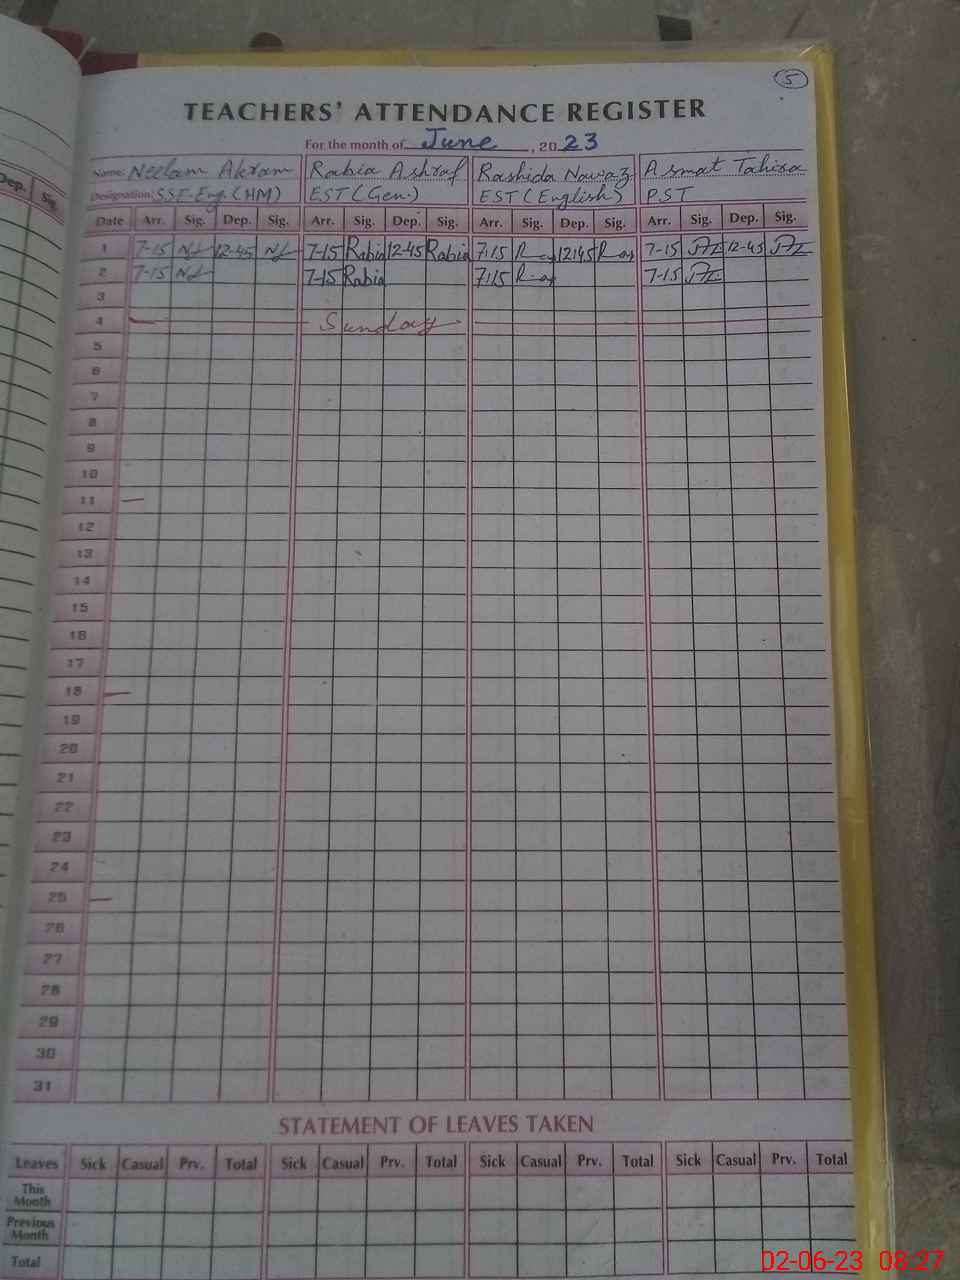 5
TEACHERS' ATTENDANCE REGISTER
For the month of June, 2023
Name: Neelam Akram Rabia Ashraf Rashida Nawaz Asmat Tahira
Designation: SSE-Eng (HM) EST (Gen.) EST (English) PST
Dep. Sig.
Date Arr. Sig. Dep. Sig. Arr. Sig. Dep. Sig. Arr. Sig. Dep. Sig. Arr. Sig. Dep. Sig.
1 7-15 12-45 7-15 Rabia 12-45 Rabia 7:15 12:45 7-15 12-45
2 7-15 7-15 Rabia 7:15 7-15
3
4 Sunday
5
6
7
8
9
10
11 —
12
13
14
15
16
17
18 —
19
20
21
22
23
24
25 —
26
27
28
29
30
31
STATEMENT OF LEAVES TAKEN
Leaves Sick Casual Prv. Total Sick Casual Prv. Total Sick Casual Prv. Total Sick Casual Prv. Total
This Month
Previous Month
Total
02-06-23 08:27